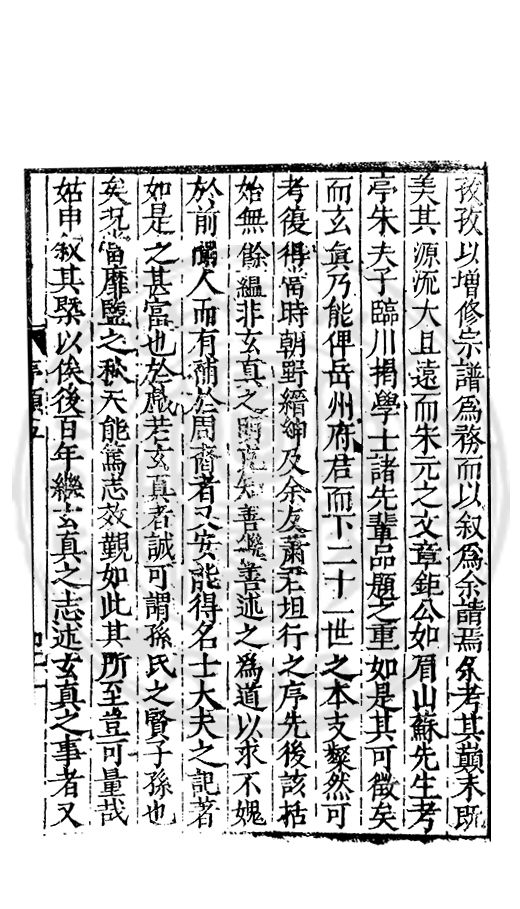 孜孜以增修宗譜為務而以叙為余請焉余考其巔末既
美其源流大且遠而朱元之文章鉅公如眉山蘇先生考
亭朱夫子臨川揭學士諸先輩品題之重如是其可徵矣
而玄眞乃能俾岳州府君而下二十一世之本支粲然可
考復得當時朝野縉紳及余友蕭石坦行之序先後該括
始無餘緼非玄真之明克知善繼善述之為道以求不媿
於前人而有補於周裔者又安能得名士大夫之記著
如是之甚富也於戲若玄真者誠可謂孫氏之賢子孫也
矣况當靡盬之秋夫能篤志效覯如此其所至豈可量哉
姑申叙其槩以俟後百年繼玄真之志述玄真之事者又